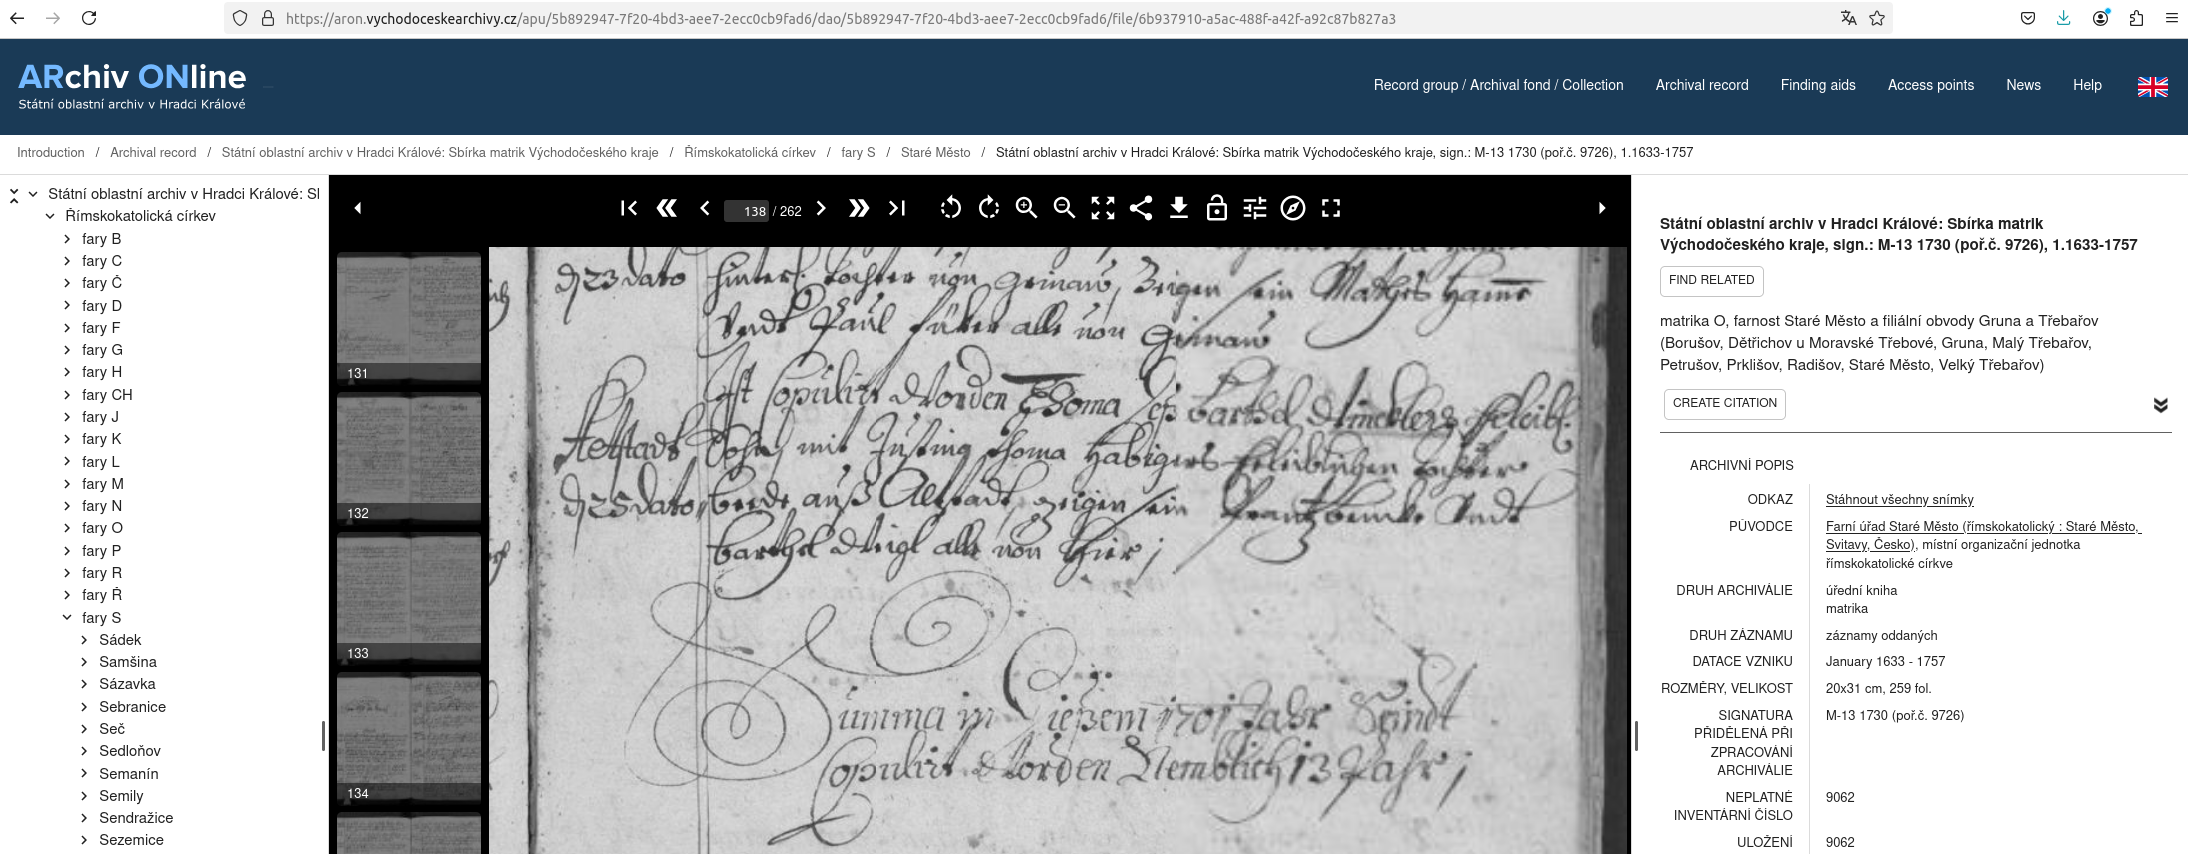 https://aron.vychodoceskearchivy.cz/apu/5b892947-7f20-4bd3-aee7-2ecc0cb9fad6/dao/5b892947-7f20-4bd3-aee7-2ecc0cb9fad6/file/6b937910-a5ac-488f-a42f-a92c87b827a3
ARchiv ONline
Státní oblastní archiv v Hradci Králové
Record group / Archival fond / Collection
Archival record
Finding aids
Access points
News
Help
Introduction / Archival record / Státní oblastní archiv v Hradci Králové: Sbírka matrik Východočeského kraje / Římskokatolická církev / fary S / Staré Město / Státní oblastní archiv v Hradci Králové: Sbírka matrik Východočeského kraje, sign.: M-13 1730 (poř.č. 9726), 1.1633-1757
Státní oblastní archiv v Hradci Králové: Sl
Římskokatolická církev
fary B
fary C
fary Č
fary D
fary F
fary G
fary H
fary CH
fary J
fary K
fary L
fary M
fary N
fary O
fary P
fary R
fary Ř
fary S
Sádek
Samšina
Sázavka
Sebranice
Seč
Sedloňov
Semanín
Semily
Sendražice
Sezemice
138 / 262
131
132
133
134
d 23 dato hinterl. tochter von Grinaw, Zeigen sein Mathes
Vndt Paul alle von Grinaw
Ist Copulirt Worden Thoma, Barthel Wincklers
Altstadt Sohn mit Justina Thoma Habigers tochter
d 25 dato, beede auß Altstadt, Zeigen sein Vndt
Barthel Weigl alle von Hier
Summa in Dießem 1701 Jahr Seindt
Copulirt Worden Nemblich 13 Pahr
Státní oblastní archiv v Hradci Králové: Sbírka matrik
Východočeského kraje, sign.: M-13 1730 (poř.č. 9726), 1.1633-1757
FIND RELATED
matrika O, farnost Staré Město a filiální obvody Gruna a Třebařov
(Borušov, Dětřichov u Moravské Třebové, Gruna, Malý Třebařov,
Petrušov, Prklišov, Radišov, Staré Město, Velký Třebařov)
CREATE CITATION
ARCHIVNÍ POPIS
ODKAZ Stáhnout všechny snímky
PŮVODCE Farní úřad Staré Město (římskokatolický : Staré Město,
Svitavy, Česko), místní organizační jednotka
římskokatolické církve
DRUH ARCHIVÁLIE úřední kniha
matrika
DRUH ZÁZNAMU záznamy oddaných
DATACE VZNIKU January 1633 - 1757
ROZMĚRY, VELIKOST 20x31 cm, 259 fol.
SIGNATURA M-13 1730 (poř.č. 9726)
PŘIDĚLENÁ PŘI
ZPRACOVÁNÍ
ARCHIVÁLIE
NEPLATNÉ 9062
INVENTÁRNÍ ČÍSLO
ULOŽENÍ 9062